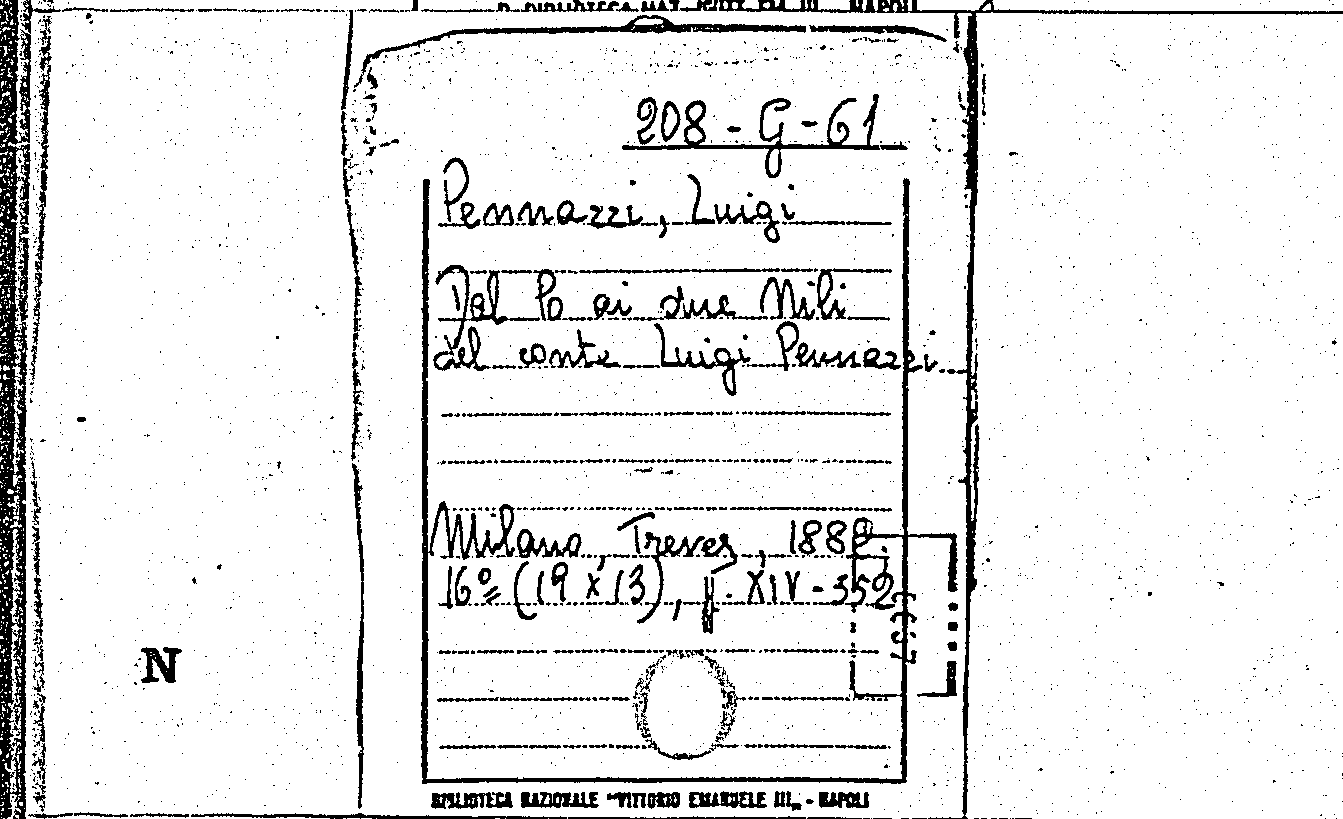 208 - G - 61
Pennazzi, Luigi
Dal Po ai due Nili
del conte Luigi Pennazzi
Milano, Treves, 1882.
16º (19 x 13), p. XIV - 352
N
BIBLIOTECA NAZIONALE "VITTORIO EMANUELE III„ - NAPOLI